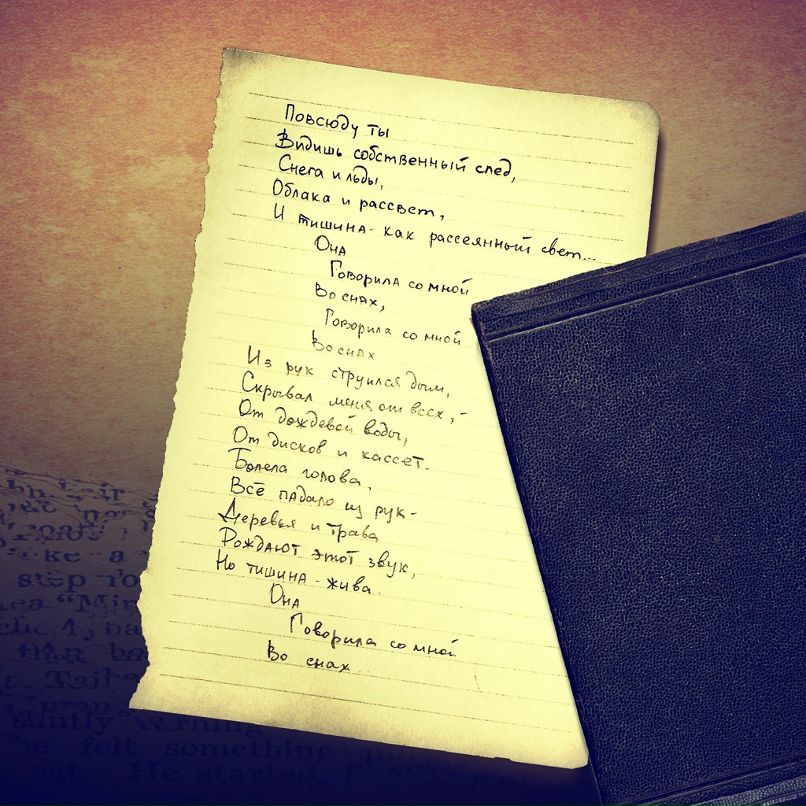 Повсюду ты
Видишь собственный след,
Снега и льды,
Облака и рассвет,
И тишина - как рассеянный свет...
Она
Говорила со мной
Во снах,
Говорила со мной
Во снах
Из рук струился дым,
Скрывал меня от всех, -
От дождевой воды,
От дисков и кассет.
Болела голова,
Всё падало из рук -
Деревья и трава
Рождают этот звук,
Но тишина - жива..
Она
Говорила со мной
Во снах..
step
"Min
than ba
he felt something
eat. He started,